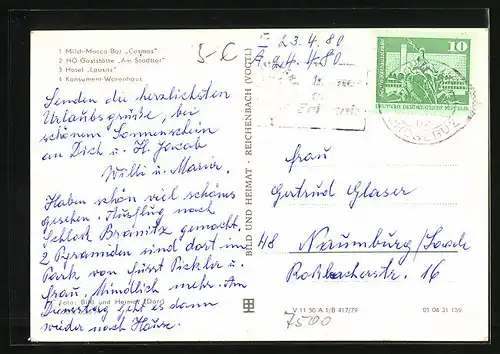 1 Milch-Mocca-Bar „Cosmos"
2 HO-Gaststätte „Am Stadttor"
3 Hotel „Lausitz"
4 Konsument-Warenhaus
5-C
E 23.4.80
A 24.4.80
10
DEUTSCHE DEMOKRATISCHE REPUBLIK
Senden die herzlichsten
Urlaubsgrüße, bei
schönem Sonnenschein
an Dich u. H. Jacob
Willi u. Maria.
Haben schön viel schöns
gesehen. Ausflug nach
Schloß Branitz gemacht,
2 Pyramiden sind dort im
Park von Fürst Pückler u.
Frau, Mündlich mehr. Am
Dienstag geht es dann
wieder nach Hause.
Foto: Bild und Heimat (Darr)
BILD UND HEIMAT · REICHENBACH (VOGTL)
Frau
Gertrud Glaser
48 Naumburg/Saale
Roßbacherstr. 16
V 11 50 A 1/B 417/79
01 06 31 159
7500